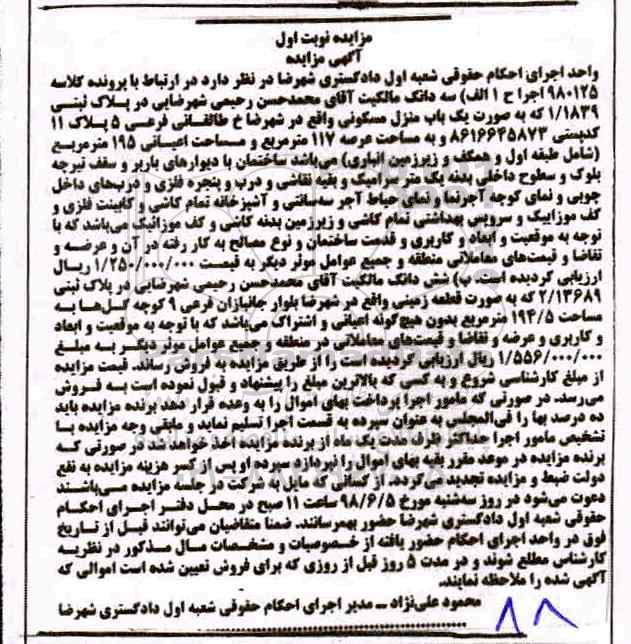 مزایده نوبت اول
آگهی مزایده
واحد اجرای احکام حقوقی شعبه اول دادگستری شهرضا در نظر دارد در ارتباط با پرونده کلاسه
۹۸۰۱۲۵ اجرا ح ۱ الف) سه دانگ مالکیت آقای محمدحسن رحیمی شهرضایی در پلاک ثبتی
۱/۱۸۳۹ که به صورت یک باب منزل مسکونی واقع در شهرضا خ طالقانی فرعی ۵ پلاک ۱۱
کدپستی ۸۶۱۶۶۴۵۸۷۳ و به مساحت عرصه ۱۱۷ مترمربع و مساحت اعیانی ۱۹۵ مترمربع
(شامل طبقه اول و همکف و زیرزمین انباری) می‌باشد ساختمان با دیوارهای باربر و سقف تیرچه
بلوک و سطوح داخلی بدنه یک متر سرامیک و بقیه نقاشی و درب و پنجره فلزی و درب‌های داخل
چوبی و نمای کوچه آجرنما و نمای حیاط آجر سه‌سانتی و آشپزخانه تمام کاشی و کابینت فلزی و
کف موزاییک و سرویس بهداشتی تمام کاشی و زیرزمین بدنه کاشی و کف موزائیک می‌باشد که با
توجه به موقعیت و ابعاد و کاربری و قدمت ساختمان و نوع مصالح به کار رفته در آن و عرضه و
تقاضا و قیمت‌های معاملاتی منطقه و جمیع عوامل موثر دیگر به قیمت ۱/۲۵۰/۰۰۰/۰۰۰ ریال
ارزیابی گردیده است. ب) شش دانگ مالکیت آقای محمدحسن رحیمی شهرضایی در پلاک ثبتی
۲/۱۳۶۸۹ که به صورت قطعه زمینی واقع در شهرضا بلوار جانبازان فرعی ۹ کوچه گل‌ها به
مساحت ۱۹۴/۵ مترمربع بدون هیچ‌گونه اعیانی و اشتراک می‌باشد که با توجه به موقعیت و ابعاد
و کاربری و عرضه و تقاضا و قیمت‌های معاملاتی در منطقه و جمیع عوامل موثر دیگر به مبلغ
۱/۵۵۶/۰۰۰/۰۰۰ ریال ارزیابی گردیده است را از طریق مزایده به فروش رساند. قیمت مزایده
از مبلغ کارشناسی شروع و به کسی که بالاترین مبلغ را پیشنهاد و قبول نموده است به فروش
می‌رسد. در صورتی که مامور اجرا پرداخت بهای اموال را به وعده قرار دهد برنده مزایده باید
ده درصد بها را فی‌المجلس به عنوان سپرده به قسمت اجرا تسلیم نماید و مابقی وجه مزایده با
تشخیص مامور اجرا حداکثر ظرف مدت یک ماه از برنده مزایده اخذ خواهد شد در صورتی که
برنده مزایده در موعد مقرر بقیه بهای اموال را نپردازد سپرده او پس از کسر هزینه مزایده به نفع
دولت ضبط و مزایده تجدید می‌گردد. از کسانی که مایل به شرکت در جلسه مزایده می‌باشند
دعوت می‌شود در روز سه‌شنبه مورخ ۹۸/۶/۵ ساعت ۱۱ صبح در محل دفتر اجرای احکام
حقوقی شعبه اول دادگستری شهرضا حضور بهمرسانند. ضمنا متقاضیان می‌توانند قبل از تاریخ
فوق در واحد اجرای احکام حضور یافته از خصوصیات و مشخصات مال مذکور در نظریه
کارشناس مطلع شوند و در مدت ۵ روز قبل از روزی که برای فروش تعیین شده است اموالی که
آگهی شده را ملاحظه نمایند.
محمود علی‌نژاد – مدیر اجرای احکام حقوقی شعبه اول دادگستری شهرضا
۸۸